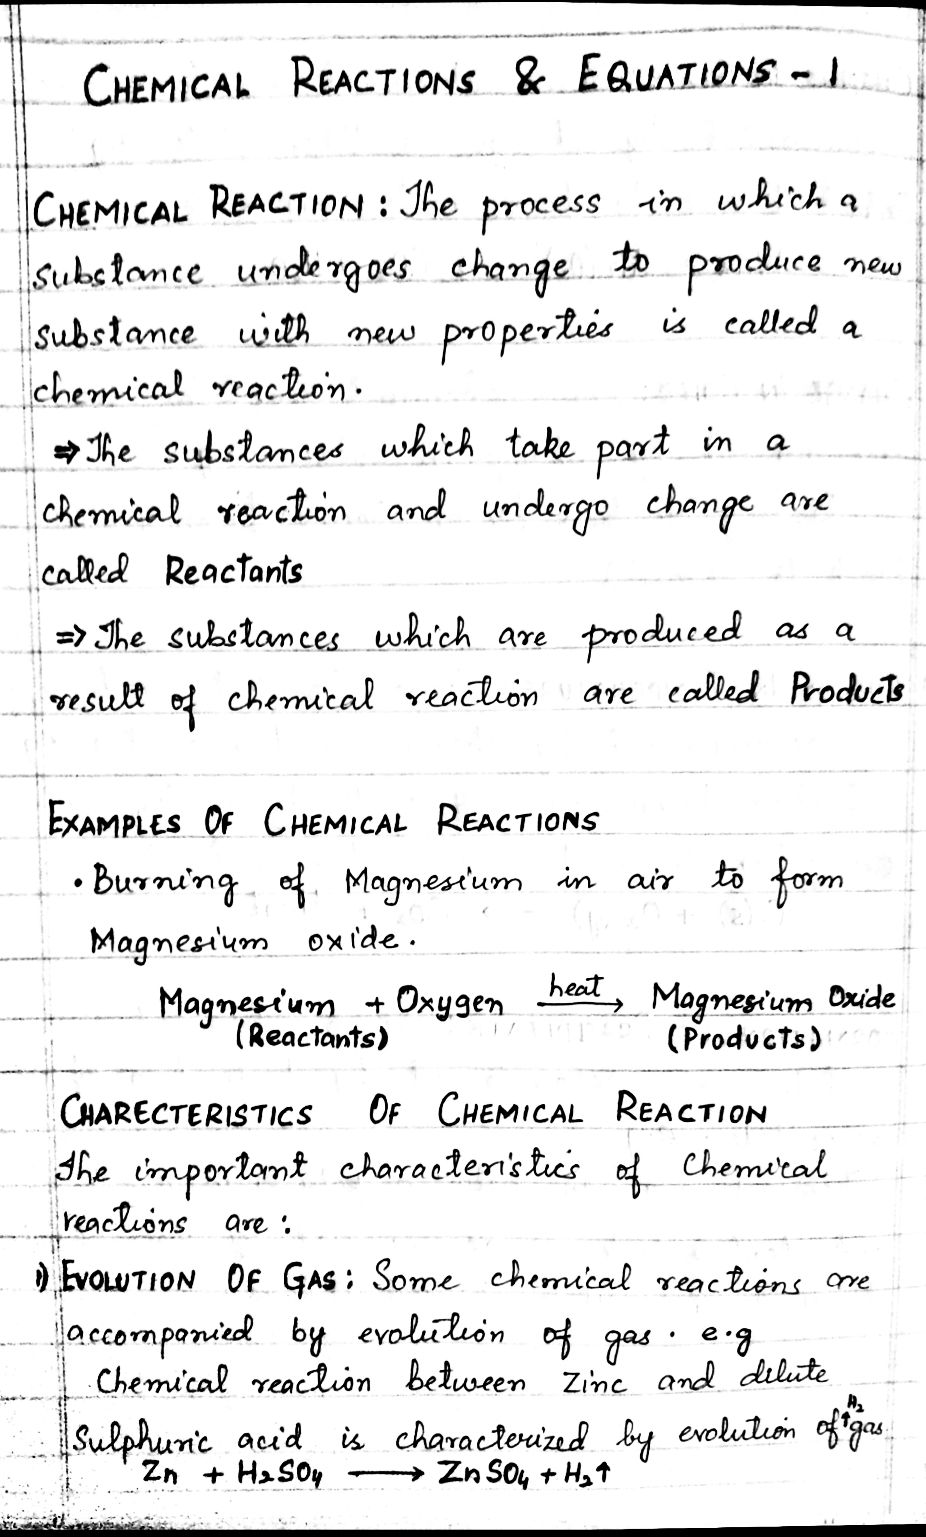 CHEMICAL REACTIONS & EQUATIONS - 1
CHEMICAL REACTION : The process in which a
substance undergoes change to produce new
substance with new properties is called a
chemical reaction.
⇒ The substances which take part in a
chemical reaction and undergo change are
called Reactants
⇒ The substances which are produced as a
result of chemical reaction are called Products
EXAMPLES OF CHEMICAL REACTIONS
• Burning of Magnesium in air to form
Magnesium oxide.
Magnesium + Oxygen heat → Magnesium Oxide
(Reactants) (Products)
CHARECTERISTICS OF CHEMICAL REACTION
The important characteristics of Chemical
reactions are :
1) EVOLUTION OF GAS : Some chemical reactions are
accompanied by evolution of gas. e.g
Chemical reaction between Zinc and dilute
Sulphuric acid is characterized by evolution of ↑H₂ gas
Zn + H₂SO₄ → ZnSO₄ + H₂↑